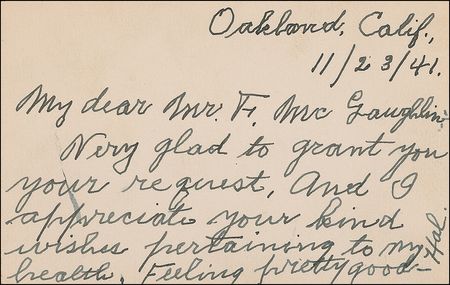 Oakland, Calif.,
11/23/41.
My dear Mr. F. Mc Gaughlin:
Very glad to grant you
your request, And I
appreciate your kind
wishes pertaining to my
health. Feeling pretty good—
Hal.